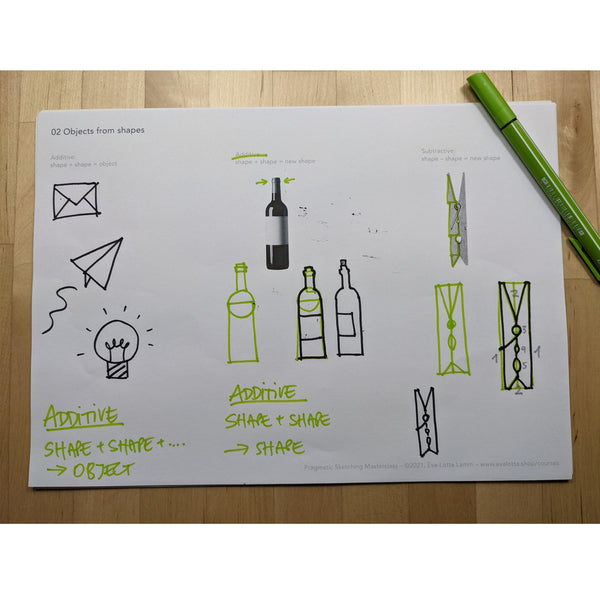 02 Objects from shapes
Additive:
shape + shape = object
Additive:
shape + shape = new shape
Subtractive:
shape – shape = new shape
ADDITIVE
SHAPE + SHAPE + ....
→ OBJECT
ADDITIVE
SHAPE + SHAPE
→ SHAPE
1
2
3
4
5
1
2
Pragmatic Sketching Masterclass – ©2021, Eva-Lotta Lamm • www.evalotta.shop/courses